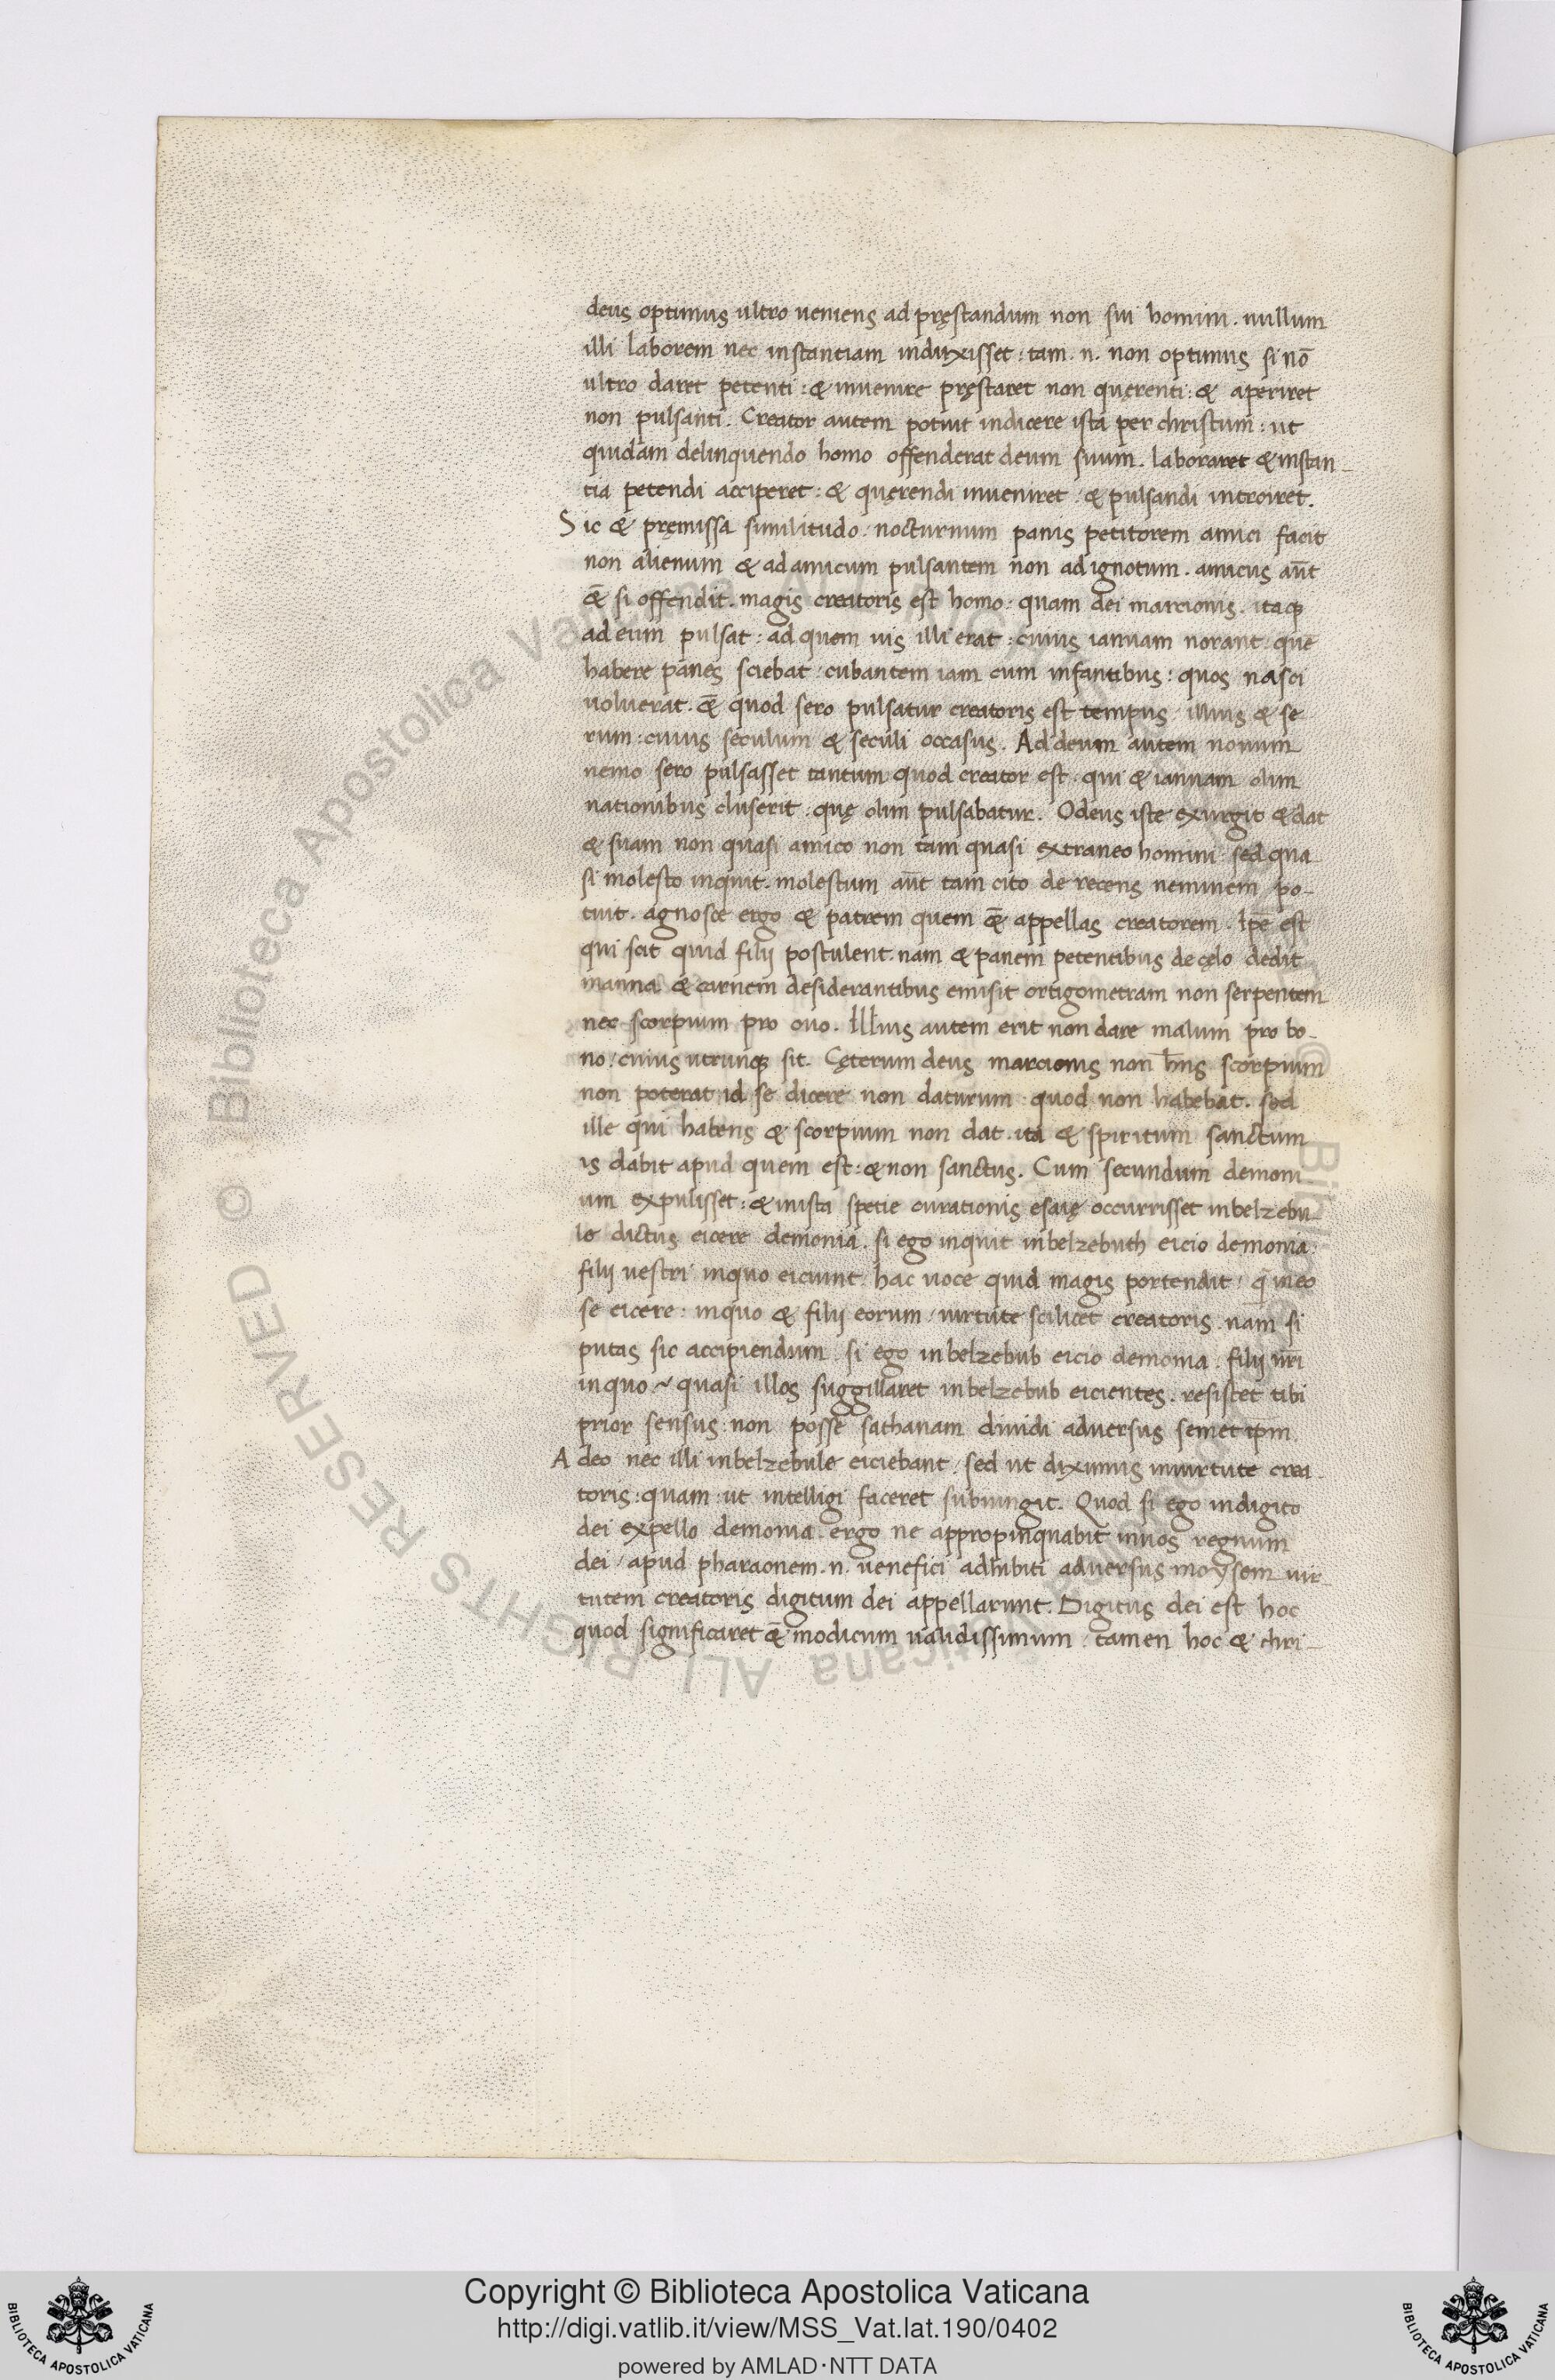 deus optimus ultro ueniens ad pręstandum non sui homini. nullum
illi laborem nec instantiam induxisset: tam. n. non optimus si nō
ultro daret petenti: & inuenire pręstaret non quęrenti: & aperiret
non pulsanti. Creator autem potuit indicere ista per christum: ut
quidam delinquendo homo offenderat deum suum. laboraret & instan-
tia petendi acciperet: & quęrendi inueniret & pulsandi introiret.
Sic & pręmissa similitudo nocturnum panis petitorem amici facit
non alienum & ad amicum pulsantem non ad ignotum. amicus aūt
&̄ si offendit. magis creatoris est homo: quam dei marcionis. itaqꝫ
ad eum pulsat: ad quem uis illi erat: cuius ianuam norant: que
habere panes sciebat: cubantem iam cum infantibus: quos nasci
uoluerat. &̄ quod sero pulsatur creatoris est tempus illius & se
rum: cuius seculum & seculi occasus. Ad deum autem nouum
nemo sero pulsasset tantum quod creator est. qui & ianuam olim
nationibus cluserit: quę olim pulsabatur. O deus iste exurgit & dat
& suam non quasi amico non tam quasi extraneo homini sed qua
si molesto inquit. molestum aūt tam cito de recens neminem po-
tuit. agnosce ergo & patrem quem &̄ appellas creatorem. Ipē est
qui scit quid filij postulent. nam & panem petentibus de cęlo dedit
manna & carnem desiderantibus emisit ortigometram non serpentem
nec scorpium pro ouo. Illius autem erit non dare malum pro bo-
no: cuius utrunqꝫ sit. Cęterum deus marcionis non hn̄s scorpium
non poterat id se dicere non daturum quod non habebat. sed
ille qui habens & scorpium non dat. ita & spiritum sanctum
is dabit apud quem est: & non sanctus. Cum secundum demoni
um expulisset: & iuista spetie curationis esaię occurrisset in belzebu
le dictus eicere demonia. si ego inquit in belzebuth eicio demonia:
filij uestri inquo eiciunt. hac uoce quid magis portendit: q̄ in eo
se eicere: inquo & filij eorum uirtute scilicet creatoris. nam si
putas sic accipiendum. si ego in belzebub eicio demonia. filij ur̄i
inquo ~ quasi illos suggillaret in belzebub eicientes. resistet tibi
prior sensus: non posse sathanam diuidi aduersus semet ipm.
Adeo nec illi in belzebule eiciebant. sed ut diximus inuirtute crea-
toris: quam: ut intelligi faceret subiungit. Quod si ego indigito
dei expello demonia. ergo ne appropinquabit inuos regnum
dei / apud pharaonem. n. uenefici adhibiti aduersus moysem uir-
tutem creatoris digitum dei appellarunt. Digitus dei est hoc
quod significaret &̄ modicum ualidissimum tamen hoc & chri-
© Biblioteca Apostolica Vaticana ALL RIGHTS RESERVED
Copyright © Biblioteca Apostolica Vaticana
http://digi.vatlib.it/view/MSS_Vat.lat.190/0402
powered by AMLAD·NTT DATA
BIBLIOTECA APOSTOLICA VATICANA
BIBLIOTECA APOSTOLICA VATICANA